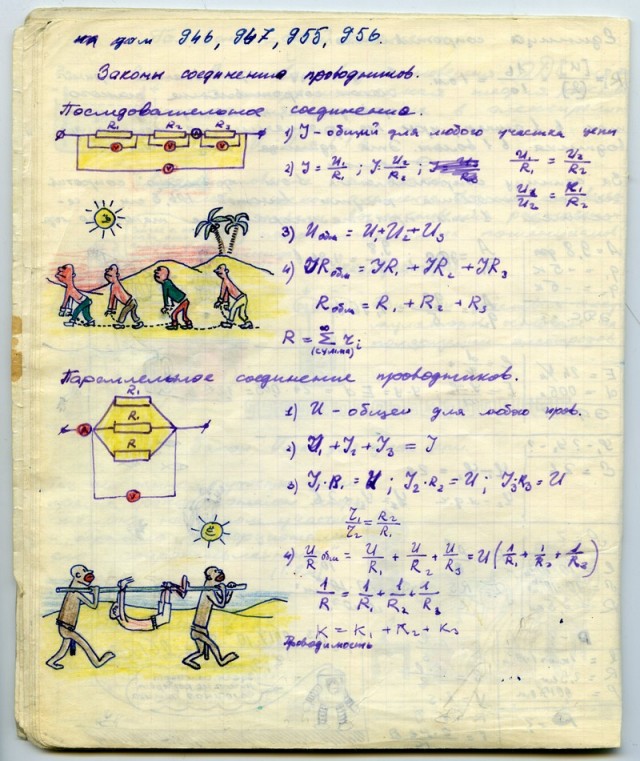 на дом 946, 947, 955, 956.
Законы соединения проводников.
Последовательное соединение.
R₁ R₂ A R₃
V V V
V
1) I - общий для любого участка цепи
2) I = U₁/R₁ ; I = U₂/R₂ ;
U₁/R₁ = U₂/R₂
U₁/U₂ = R₁/R₂
3) Uобщ = U + U₂ + U₃
4) IRобщ = IR₁ + IR₂ + IR₃
Rобщ = R₁ + R₂ + R₃
R = ∞∑ r i
(сумма)
Параллельное соединение проводников.
R₁
A R₁
R
V
1) U - общей для любого пров.
2) I₁ + I₂ + I₃ = I
3) I₁·R₁ = U ; I₂·R₂ = U ; I₃·R₃ = U
I₁/I₂ = R₂/R₁
4) U/R общ = U/R₁ + U/R₂ + U/R₃ = U(1/R₁ + 1/R₂ + 1/R₃)
1/R = 1/R₁ + 1/R₂ + 1/R₃
K = K₁ + K₂ + K₃
Проводимость